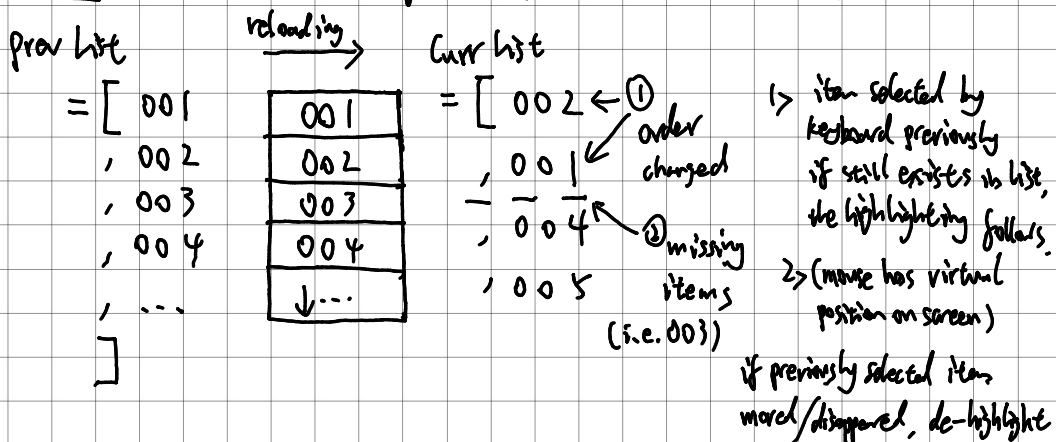 prev list
= [ 001
, 002
, 003
, 004
, ...
]
reloading
001
002
003
004
↓...
Curr list
= [ 002 ← ①
order
changed
, 001
, 004
② missing
items
(i.e. 003)
, 005
1> item selected by
keyboard previously
if still exists in list,
the highlighting follows.
2> (mouse has virtual
position on screen)
if previously selected item
moved/disappeared, de-highlight